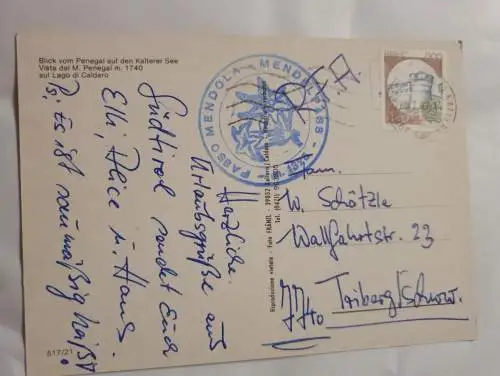 Blick vom Penegal auf den Kalterer See
Vista dal M. Penegal m. 1740
sul Lago di Caldaro
PASSO MENDOLA - MENDELPASS
Herzliche
Urlaubsgrüße aus
Südtirol sendet Euch
Elli, Alice u. Hans.
Ps; Es ist saumäßig heiß!
Fam.
W. Schötzle
Wallfahrtstr. 23
7740 Triberg/Schww.
Riproduzione vietata - Foto FRÄNZL - 39052 Kaltern / Caldaro
517/21